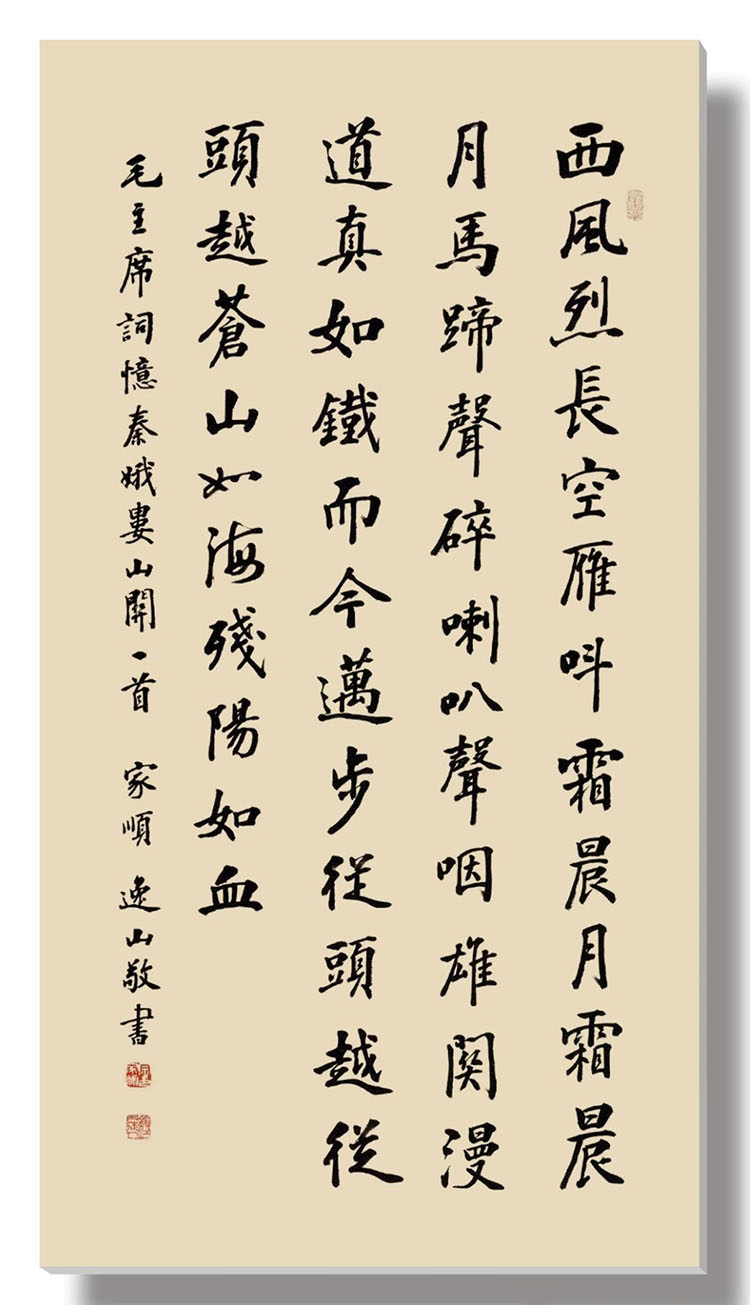 西風烈長空雁呌霜晨月霜晨
月馬蹄聲碎喇叭聲咽雄関漫
道真如鐵而今邁步從頭越從
頭越蒼山如海殘陽如血
毛主席詞憶秦娥婁山關一首 家順 逸山敬書